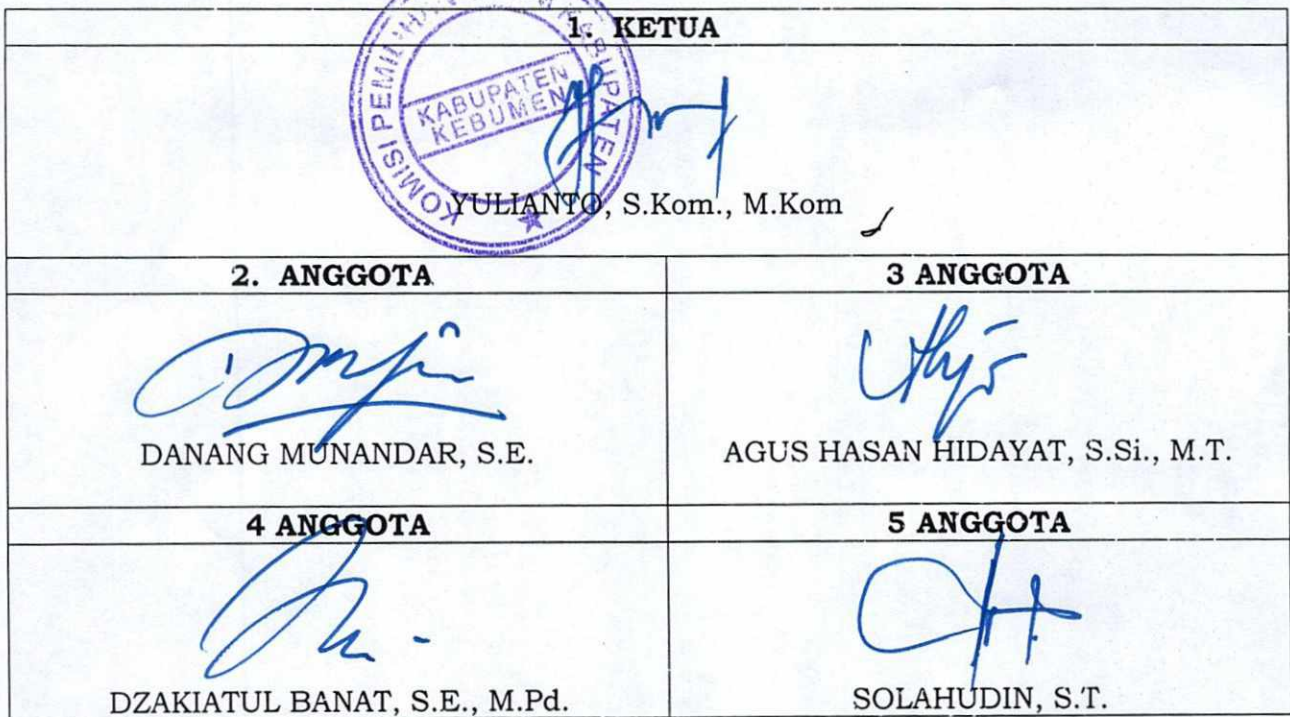 1. KETUA
KOMISI PEMILIHAN KABUPATEN
KABUPATEN
KEBUMEN
YULIANTO, S.Kom., M.Kom
2. ANGGOTA
3 ANGGOTA
DANANG MUNANDAR, S.E.
AGUS HASAN HIDAYAT, S.Si., M.T.
4 ANGGOTA
5 ANGGOTA
DZAKIATUL BANAT, S.E., M.Pd.
SOLAHUDIN, S.T.